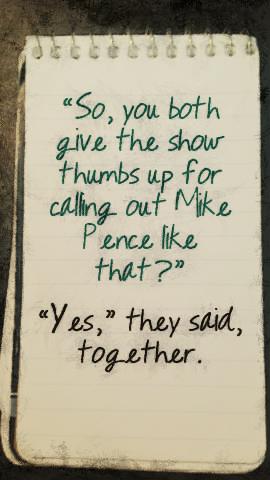 “So, you both
give the show
thumbs up for
calling out Mike
Pence like
that?”
“Yes,” they said,
together.